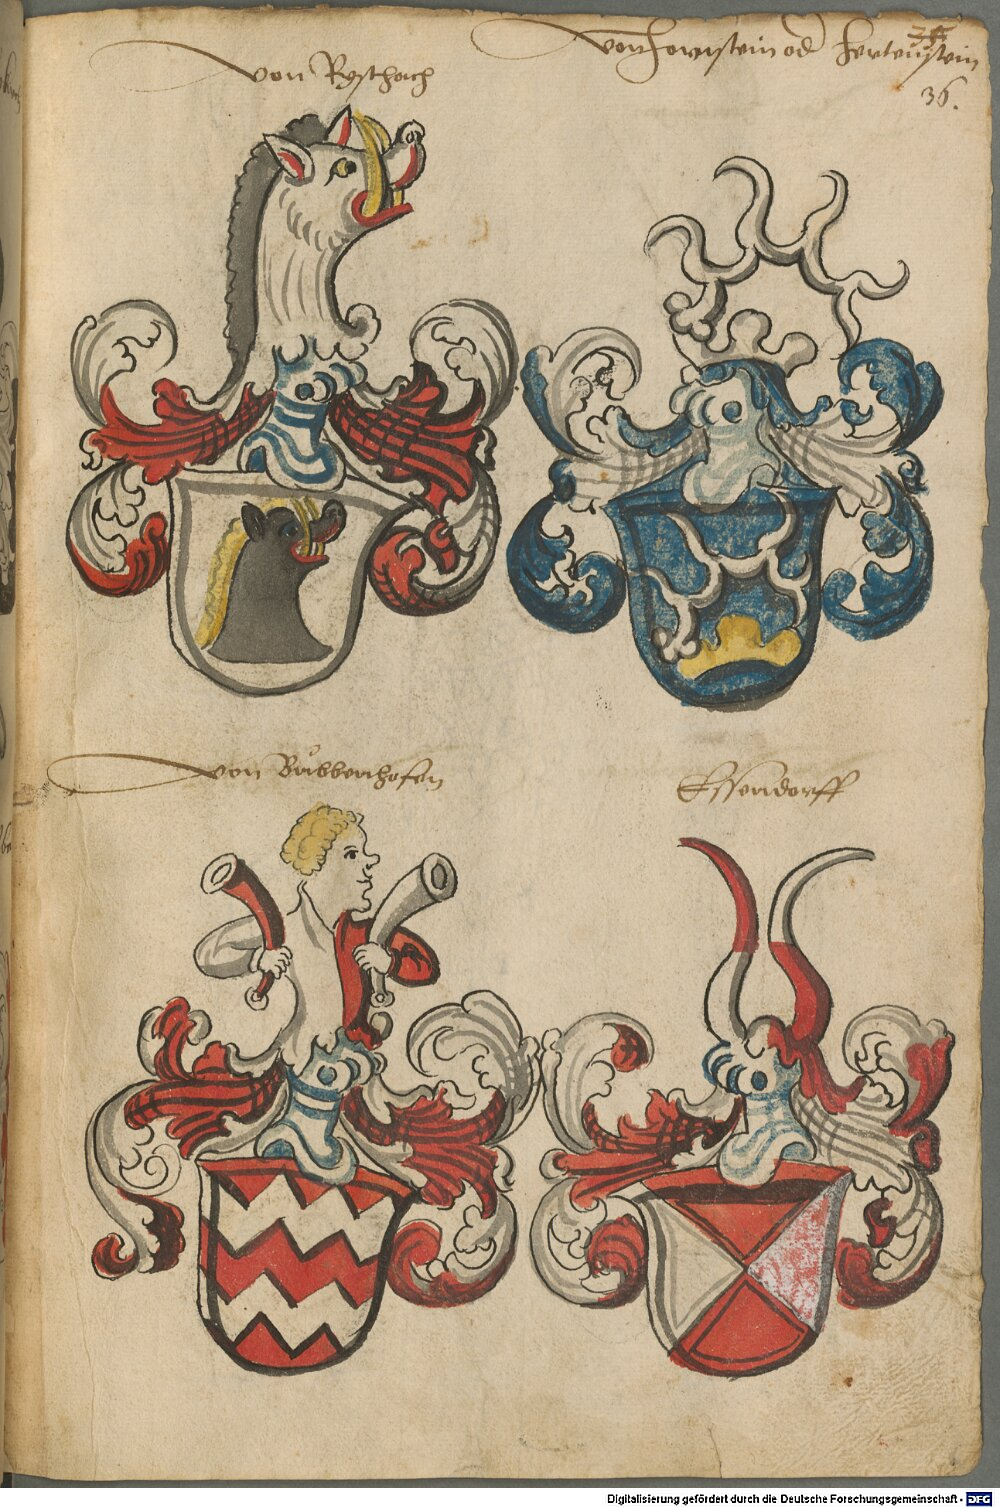 von Ryschach
von Hornstein od Hertenstein
36.
von Bubbenhofen
Essendorff
Digitalisierung gefördert durch die Deutsche Forschungsgemeinschaft - DFG